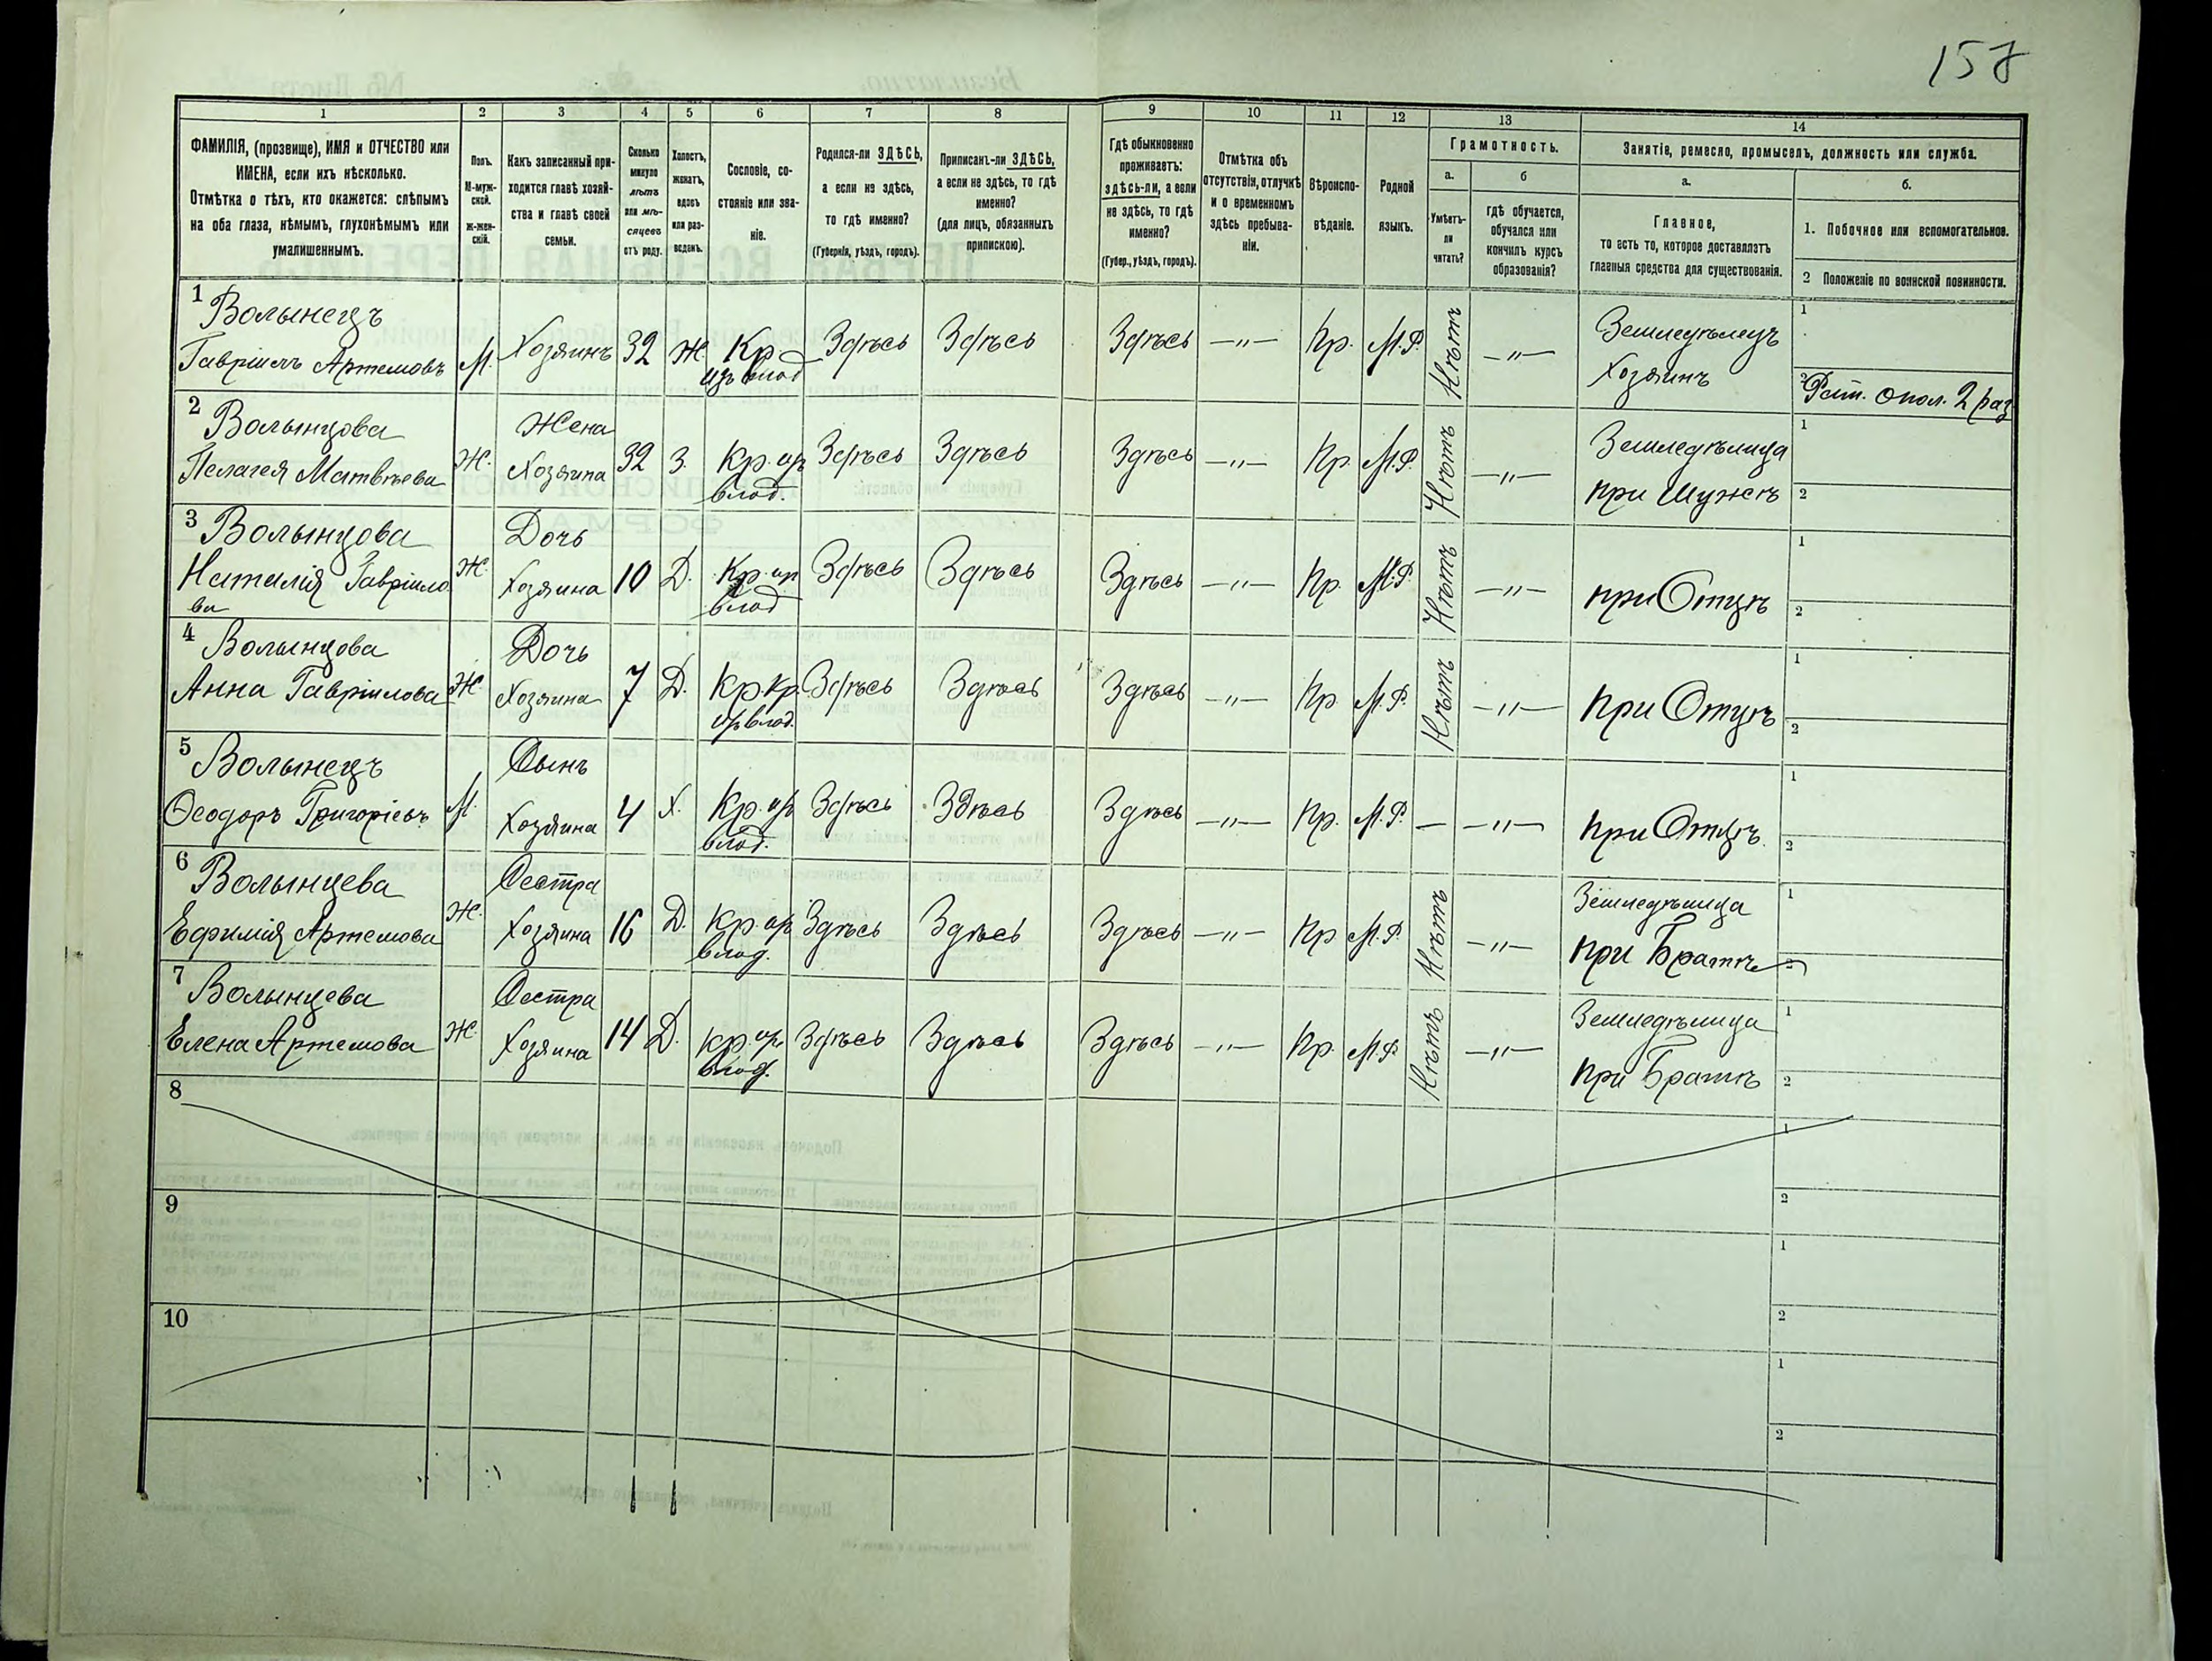 158
1 2 3 4 5 6 7 8 9 10 11 12 13 14
ФАМИЛІЯ, (прозвище), ИМЯ и ОТЧЕСТВО или
ИМЕНА, если ихъ нѣсколько.
Отмѣтка о тѣхъ, кто окажется: слѣпымъ
на оба глаза, нѣмымъ, глухонѣмымъ или
умалишеннымъ.
Полъ.
М-муж-
ской.
Ж-жен-
скій.
Какъ записанный при-
ходится главѣ хозяй-
ства и главѣ своей
семьи.
Сколько
минуло
лѣтъ
или мѣ-
сяцевъ
отъ роду.
Холостъ,
женатъ,
вдовъ
или раз-
веденъ.
Сословіе, со-
стояніе или зва-
ніе.
Родился-ли ЗДѢСЬ,
а если не здѣсь,
то гдѣ именно?
(Губернія, уѣздъ, городъ).
Приписанъ-ли ЗДѢСЬ,
а если не здѣсь, то гдѣ
именно?
(для лицъ, обязанныхъ
припискою).
Гдѣ обыкновенно
проживаетъ:
здѣсь-ли, а если
не здѣсь, то гдѣ
именно?
(Губер., уѣздъ, городъ).
Отмѣтка объ
отсутствіи, отлучкѣ
и о временномъ
здѣсь пребыва-
ніи.
Вѣроиспо-
вѣданіе.
Родной
языкъ.
Грамотность.
а.
Умѣетъ-
ли
читать?
б
гдѣ обучается,
обучался или
кончилъ курсъ
образованія?
Занятіе, ремесло, промыселъ, должность или служба.
а.
Главное,
то есть то, которое доставляетъ
главныя средства для существованія.
б.
1. Побочное или вспомогательное.
2 Положеніе по воинской повинности.
1 Волынецъ Земледѣлецъ 1
Гавріилъ Артемовъ М. Хозяинъ 32 Ж. Кр. Здѣсь Здѣсь Здѣсь —"— Пр. М.Р. Нѣтъ —"— Хозяинъ
изъ влад 2 Рат. опол. 2 раз
2 Волынцова Жена Земледѣлица 1
Пелагея Матвѣева Ж. Хозяина 32 З. Кр. Здѣсь Здѣсь Здѣсь —"— Пр. М.Р. Нѣтъ —"— при Мужѣ 2
влад.
3 Волынцова Дочь 1
Наталія Гавріило Ж. Хозяина 10 Д. Кр. Здѣсь Здѣсь Здѣсь —"— Пр. М.Р. Нѣтъ —"— при Отцѣ 2
ва влад
4 Волынцова Дочь 1
Анна Гавріилова Ж. Хозяина 7 Д. Кр. Кр. Здѣсь Здѣсь Здѣсь —"— Пр. М.Р. Нѣтъ —"— при Отцѣ 2
влад.
5 Волынецъ Сынъ 1
Ѳеодоръ Григорьевъ М. Хозяина 4 Х. Кр. Здѣсь Здѣсь Здѣсь —"— Пр. М.Р. — —"— при Отцѣ. 2
влад.
6 Волынцева Сестра Земледѣлица 1
Ефимія Артемова Ж. Хозяина 16 Д. Кр. Здѣсь Здѣсь Здѣсь —"— Пр М.Р. Нѣтъ —"— при Братѣ 2
влад.
7 Волынцева Сестра Земледѣлица 1
Елена Артемова Ж. Хозяина 14 Д. Кр. Здѣсь Здѣсь Здѣсь —"— Пр. М.Р. Нѣтъ —"— при Братѣ 2
влад.
8 1
2
9 1
2
10 1
2